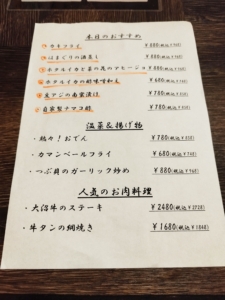 本日のおすすめ
①カキフライ ¥880(税込¥968)
②はまぐりの酒蒸し ¥880(税込¥968)
③ホタルイカと菜の花のアヒージョ ¥880(税込¥968)
④ホタルイカの酢味噌和え ¥680(税込¥748)
⑤豆アジの南蛮漬け ¥580(税込¥638)
⑥自家製ナマコ酢 ¥680(税込¥748)
温菜&揚げ物
・熱々!おでん ¥780(税込¥858)
・カマンベールフライ ¥680(税込¥748)
・つぶ貝のガーリック炒め ¥880(税込¥968)
人気のお肉料理
・大沼牛のステーキ ¥2480(税込¥2728)
・牛タンの網焼き ¥1680(税込¥1848)